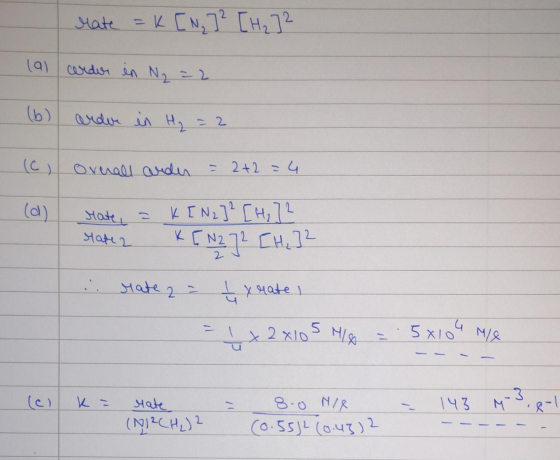 rate = K [N₂]² [H₂]²
(a) order in N₂ = 2
(b) order in H₂ = 2
(c) overall order = 2+2 = 4
(d) rate₁ / rate₂ = K [N₂]² [H₂]² / K [N₂/2]² [H₂]²
∴ rate₂ = 1/4 × rate₁
= 1/4 × 2×10⁵ M/s = 5×10⁴ M/s
(e) K = rate / (N₂)²(H₂)² = 8.0 M/s / (0.55)² (0.43)² = 143 M⁻³·s⁻¹